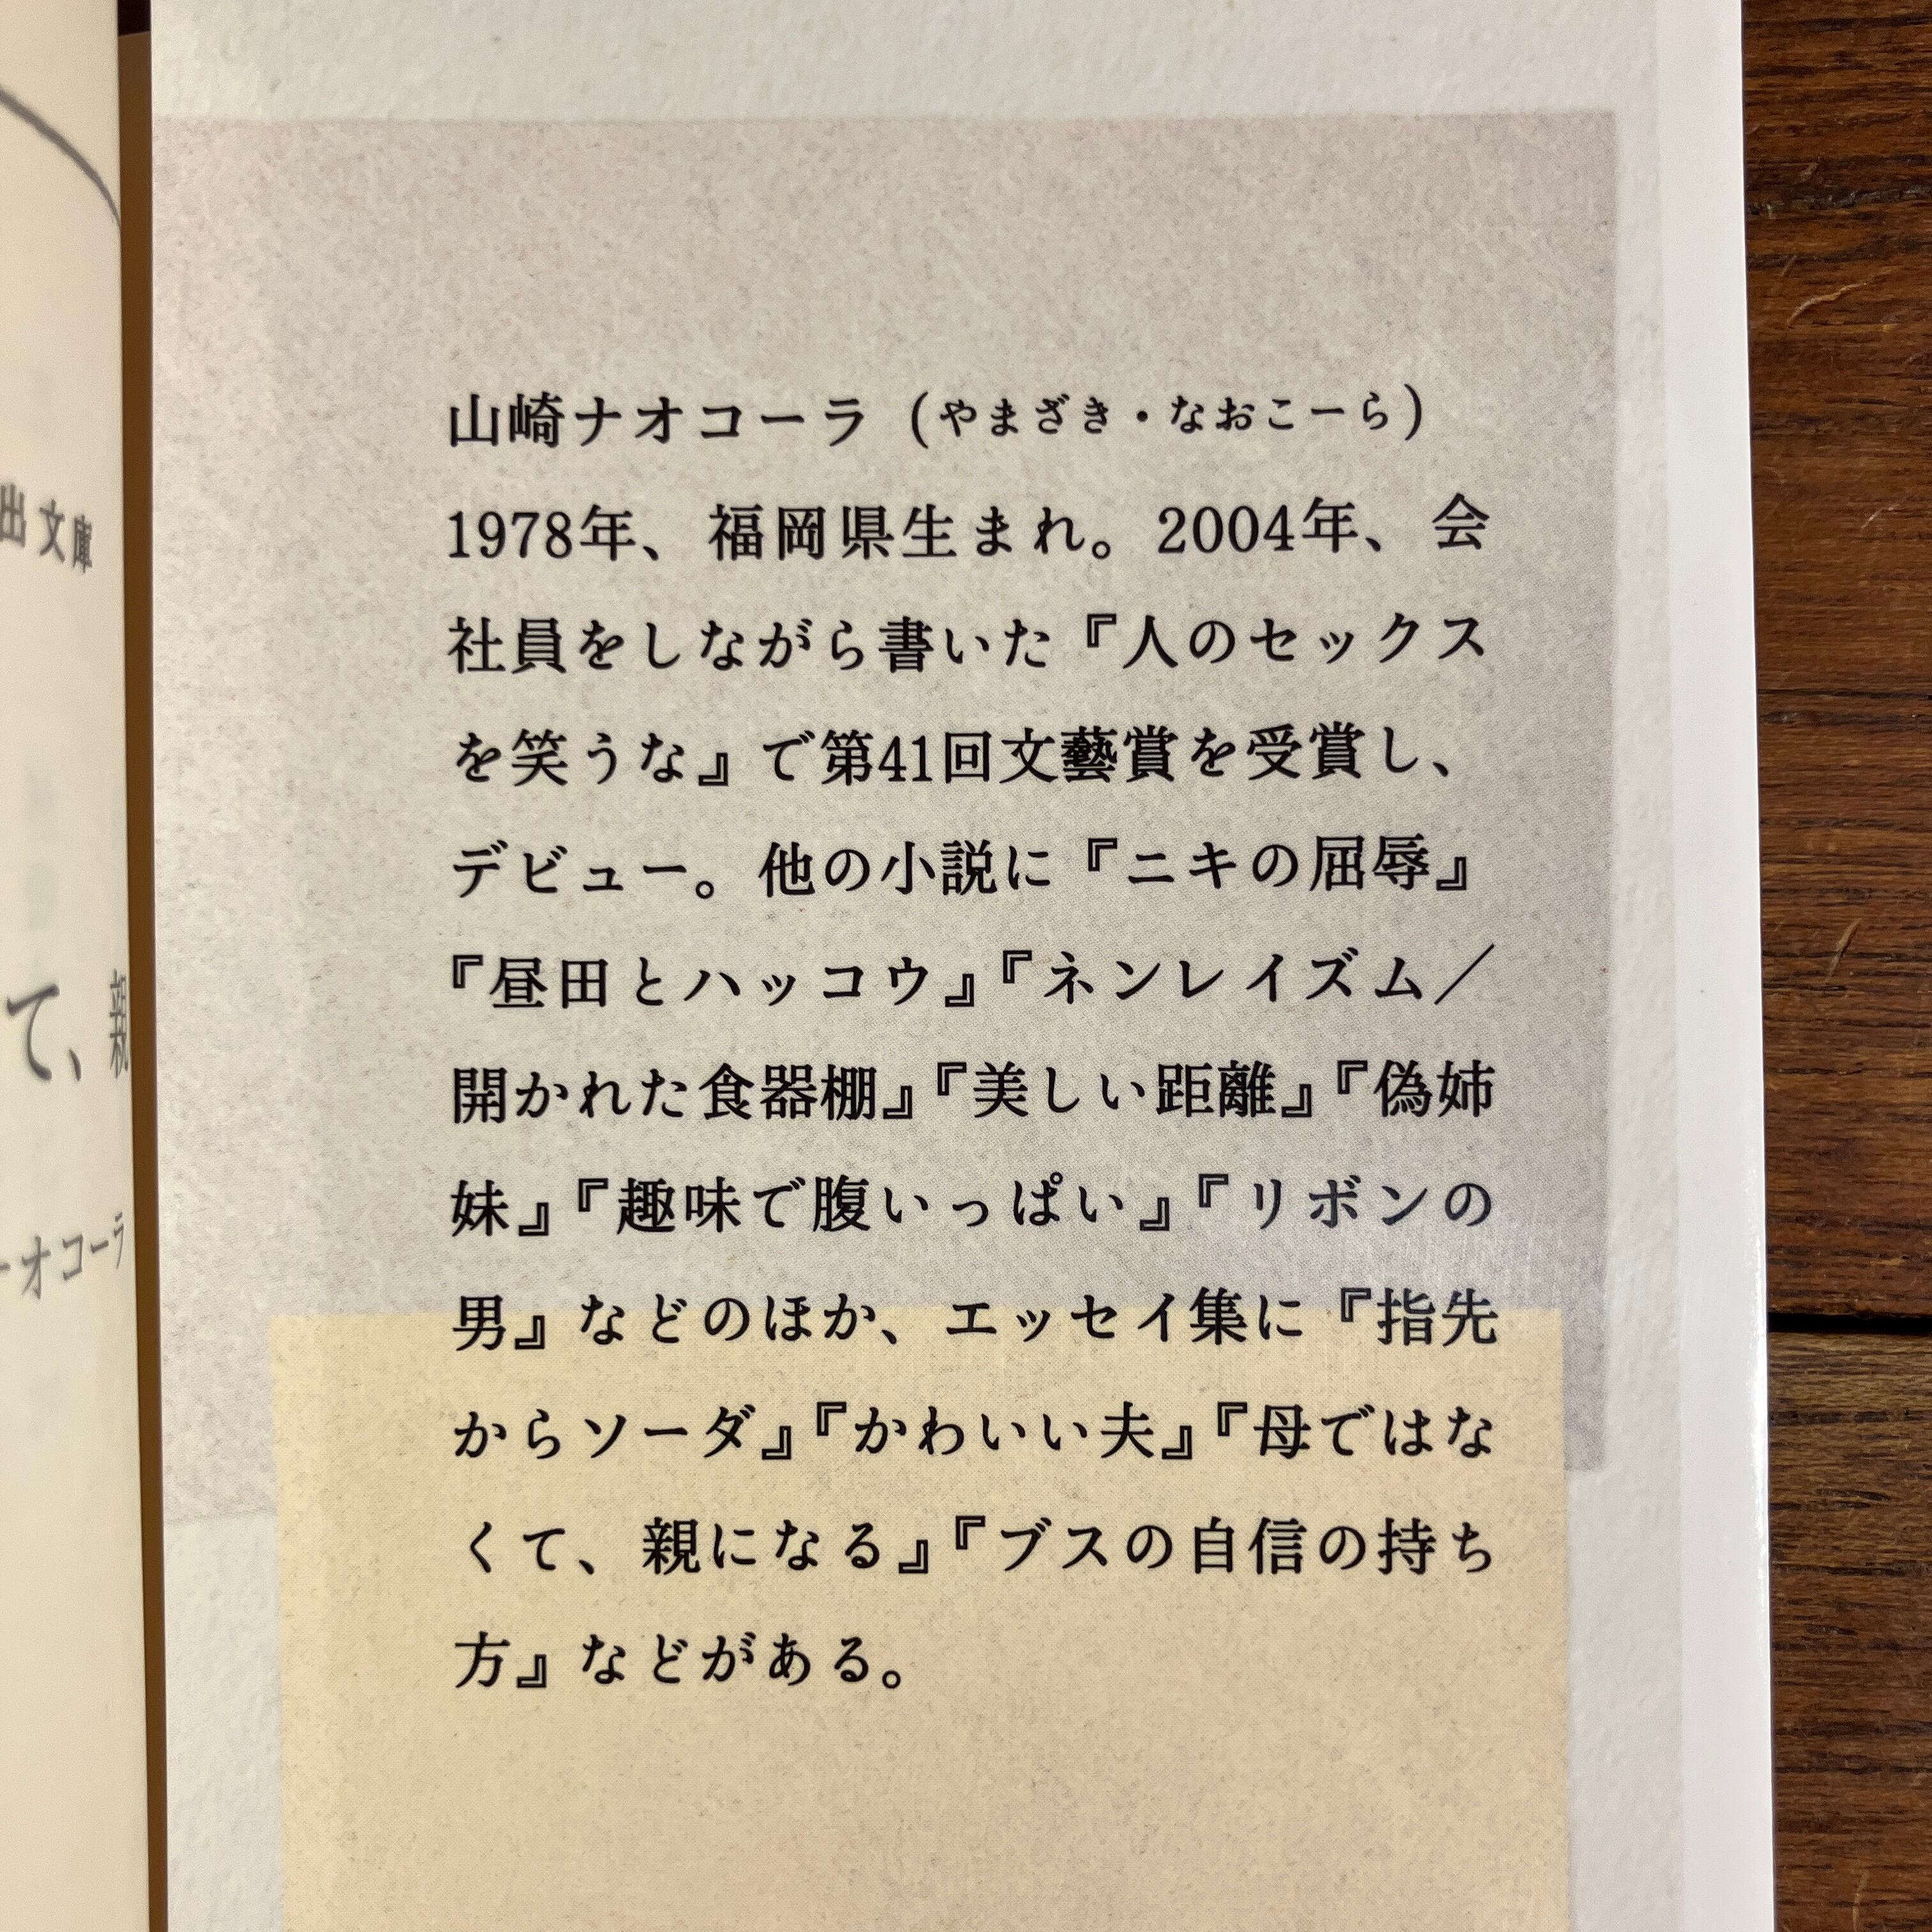 出文庫
て、親
ーオコーラ
山崎ナオコーラ（やまざき・なおこーら）
1978年、福岡県生まれ。2004年、会
社員をしながら書いた『人のセックス
を笑うな』で第41回文藝賞を受賞し、
デビュー。他の小説に『ニキの屈辱』
『昼田とハッコウ』『ネンレイズム／
開かれた食器棚』『美しい距離』『偽姉
妹』『趣味で腹いっぱい』『リボンの
男』などのほか、エッセイ集に『指先
からソーダ』『かわいい夫』『母ではな
くて、親になる』『ブスの自信の持ち
方』などがある。